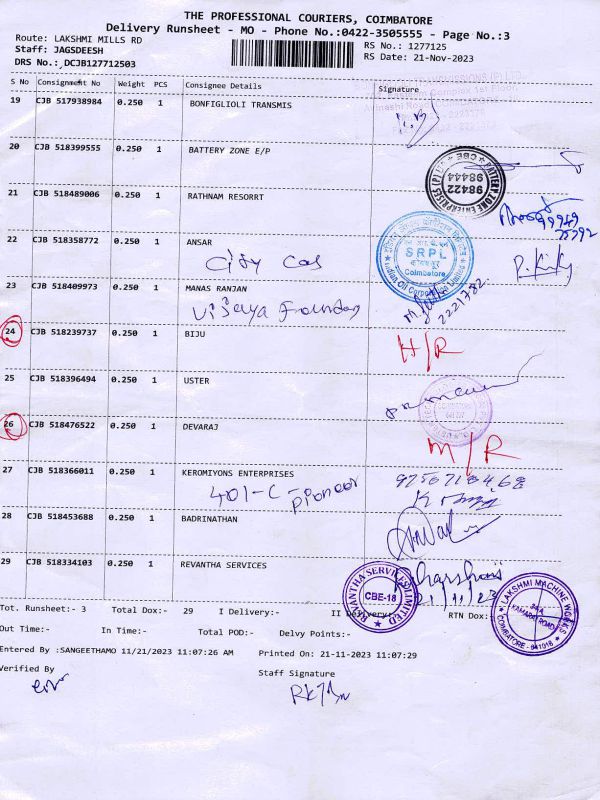 THE PROFESSIONAL COURIERS, COIMBATORE
Delivery Runsheet - MO - Phone No.:0422-3505555 - Page No.:3
Route: LAKSHMI MILLS RD
RS No.: 1277125
Staff: JAGSDEESH
RS Date: 21-Nov-2023
DRS No.: DCJB127712503
S No Consignment No Weight PCS Consignee Details Signature
19 CJB 517938984 0.250 1 BONFIGLIOLI TRANSMIS
20 CJB 518399555 0.250 1 BATTERY ZONE E/P
BATTERY ZONE ENTERPRISES (P) LTD CBE-4 98422 98444
21 CJB 518489006 0.250 1 RATHNAM RESORRT
99949
22 CJB 518358772 0.250 1 ANSAR
City Gas
SRPL Coimbatore
23 CJB 518409973 0.250 1 MANAS RANJAN
Vijaya Foundry
2221782
24 CJB 518239737 0.250 1 BIJU
H/R
25 CJB 518396494 0.250 1 USTER
26 CJB 518476522 0.250 1 DEVARAJ
M/R
27 CJB 518366011 0.250 1 KEROMIYONS ENTERPRISES
401-C - Pioneer
28 CJB 518453688 0.250 1 BADRINATHAN
29 CJB 518334103 0.250 1 REVANTHA SERVICES
21/11/23
REVANTHA SERVICES LIMITED CBE-18
LAKSHMI MACHINE WORKS KAMARAJ ROAD COIMBATORE - 641018
Tot. Runsheet:- 3 Total Dox:- 29 I Delivery:- II Delivery:- RTN Dox:-
Out Time:- In Time:- Total POD:- Delvy Points:-
Entered By :SANGEETHAMO 11/21/2023 11:07:26 AM Printed On: 21-11-2023 11:07:29
Verified By Staff Signature